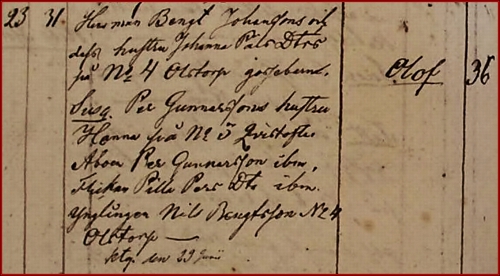 23 31 Husman Bengt Johanssons och
dess hustru Johanna Pals Dtrs
på No 4 Olstorp gossebarn. Olof 36
Susc. Per Gunnarssons hustru
Hanna på No 5
Åboen Per Gunnarsson ibm,
Flickan Pille Pers Dtr ibm.
Ynglingen Nils Bengtsson No 4
Olstorp
ktg. den 23 Juni